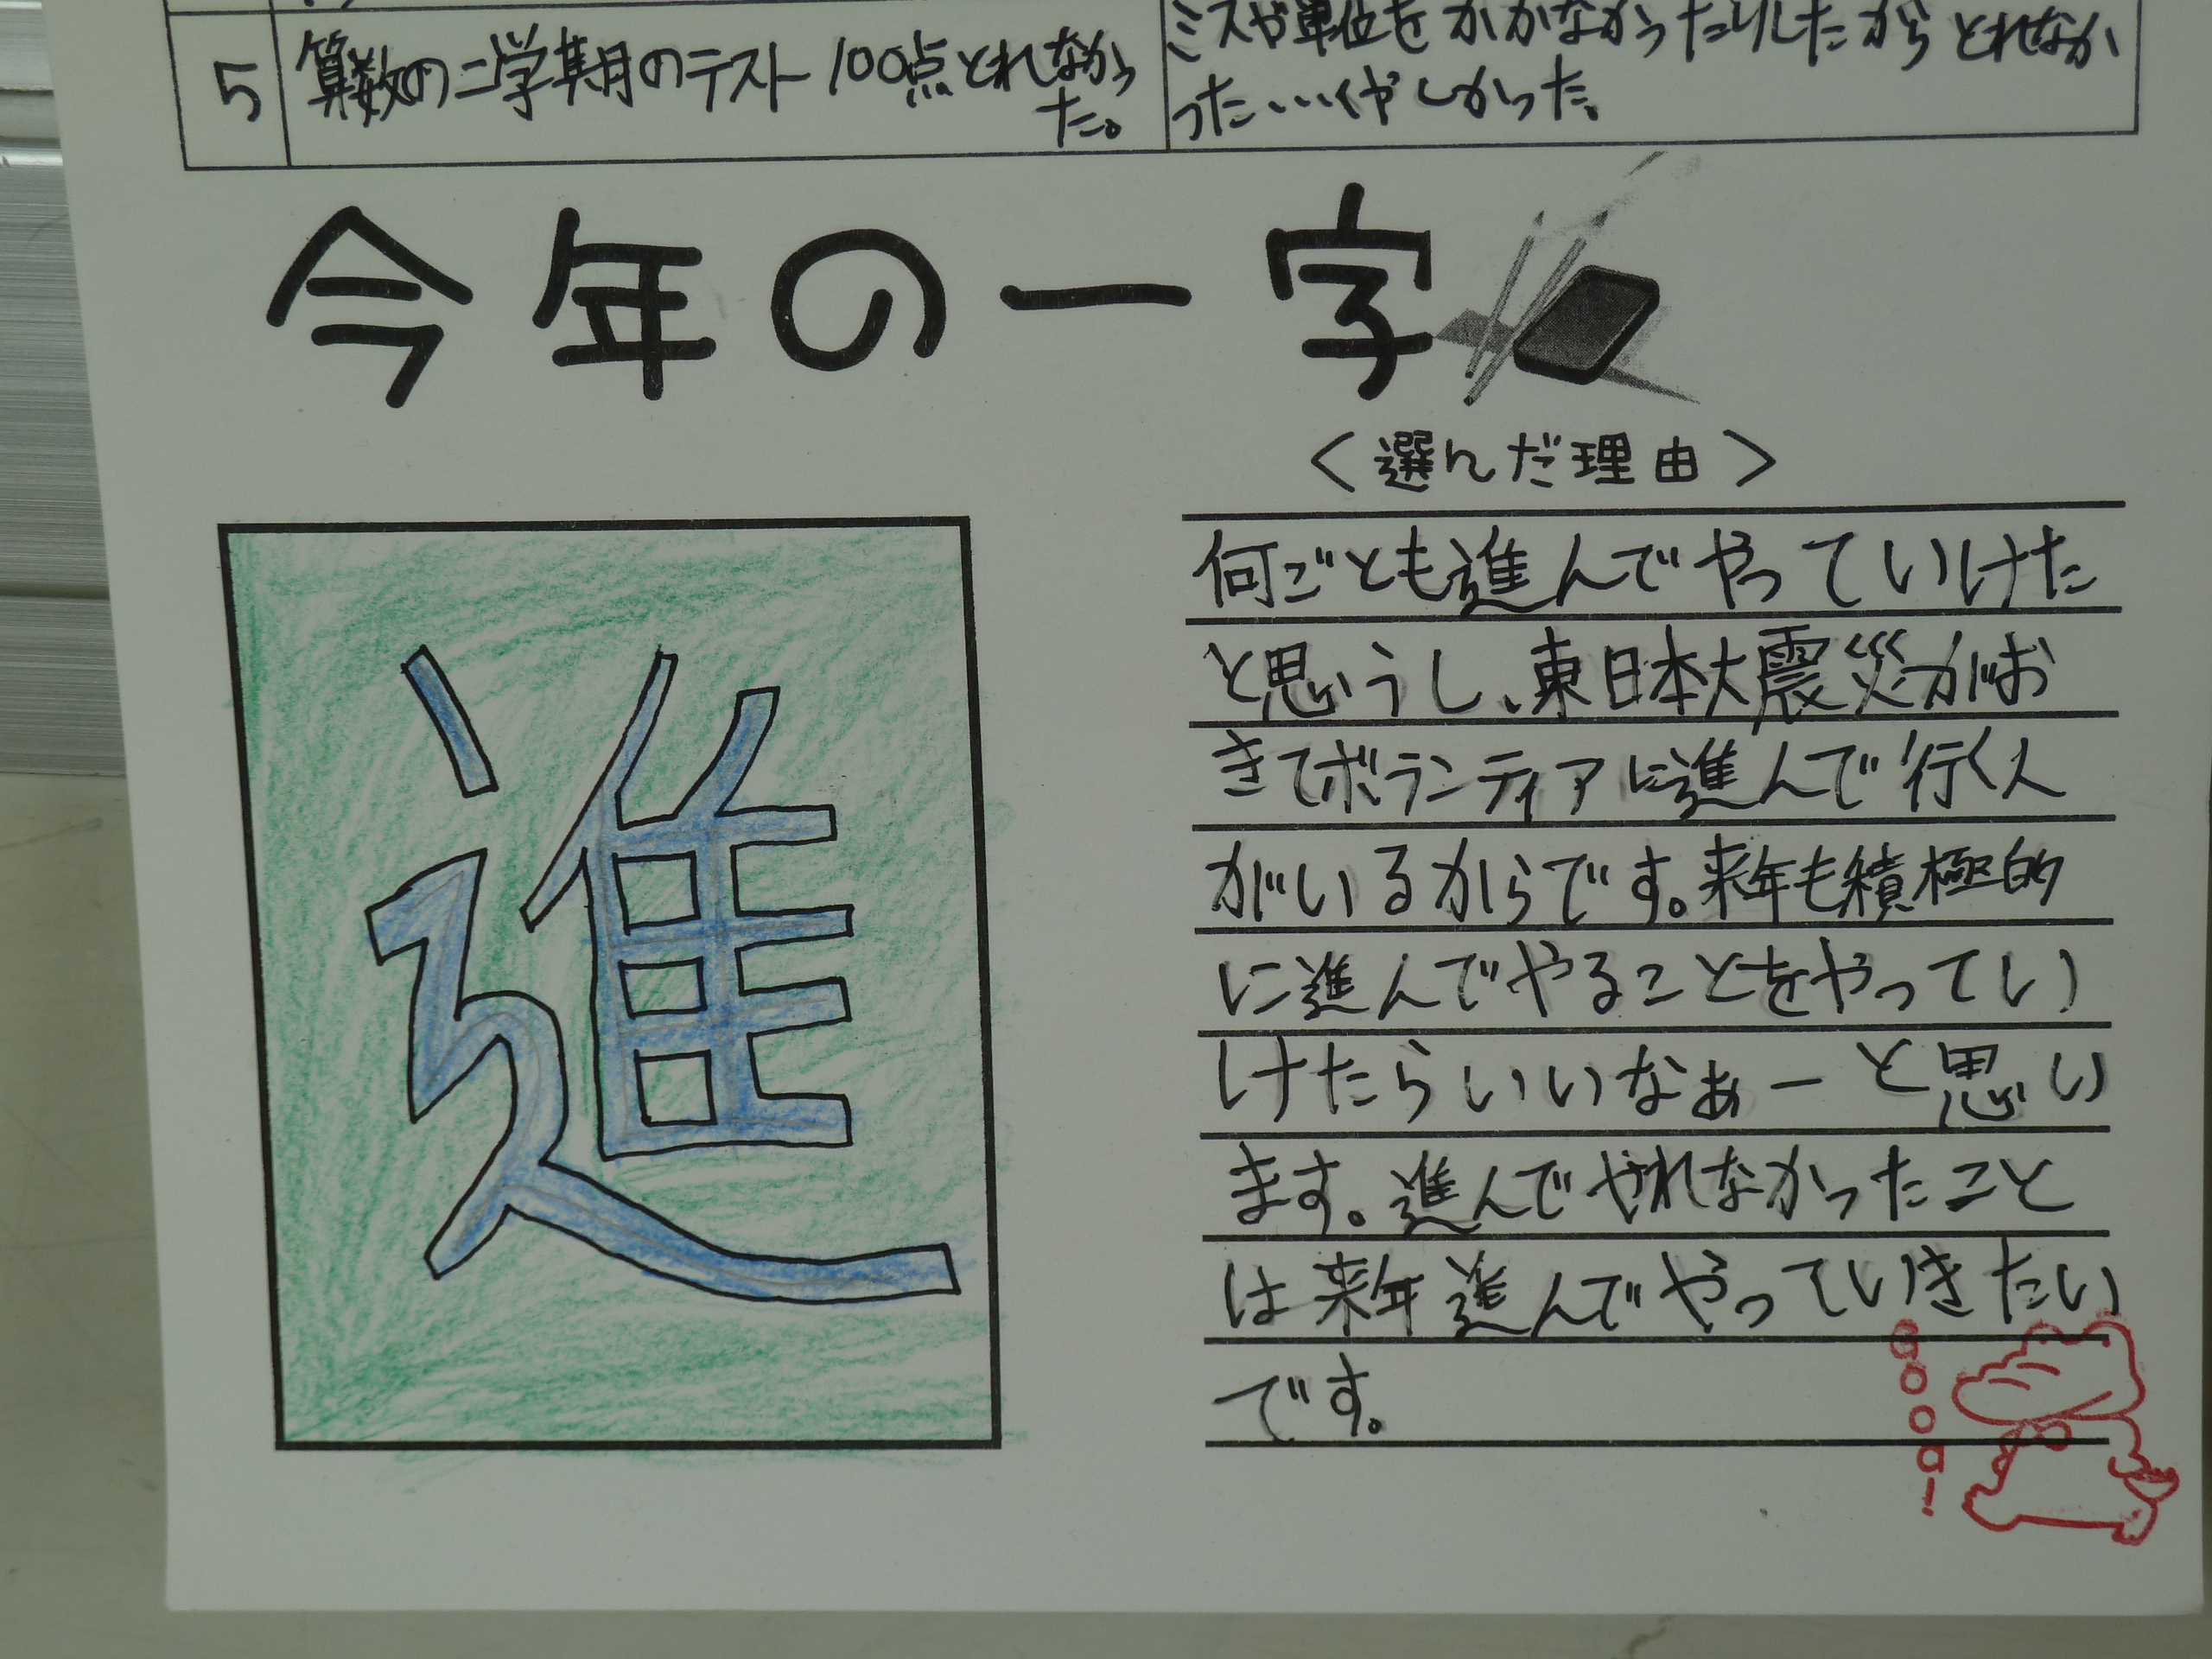 5
算数の二学期のテスト100点とれなかっ
た。
ミスや単位をかかなかったりしたからとれなか
った…くやしかった。
今年の一字
＜選んだ理由＞
進
何ごとも進んでやっていけた
と思いうし、東日本大震災がお
きてボランティアに進んで行く人
がいるからです。来年も積極的
に進んでやることをやってい
けたらいいなぁーと思い
ます。進んでやれなかったこと
は来年進んでやっていきたい
です。
Good!